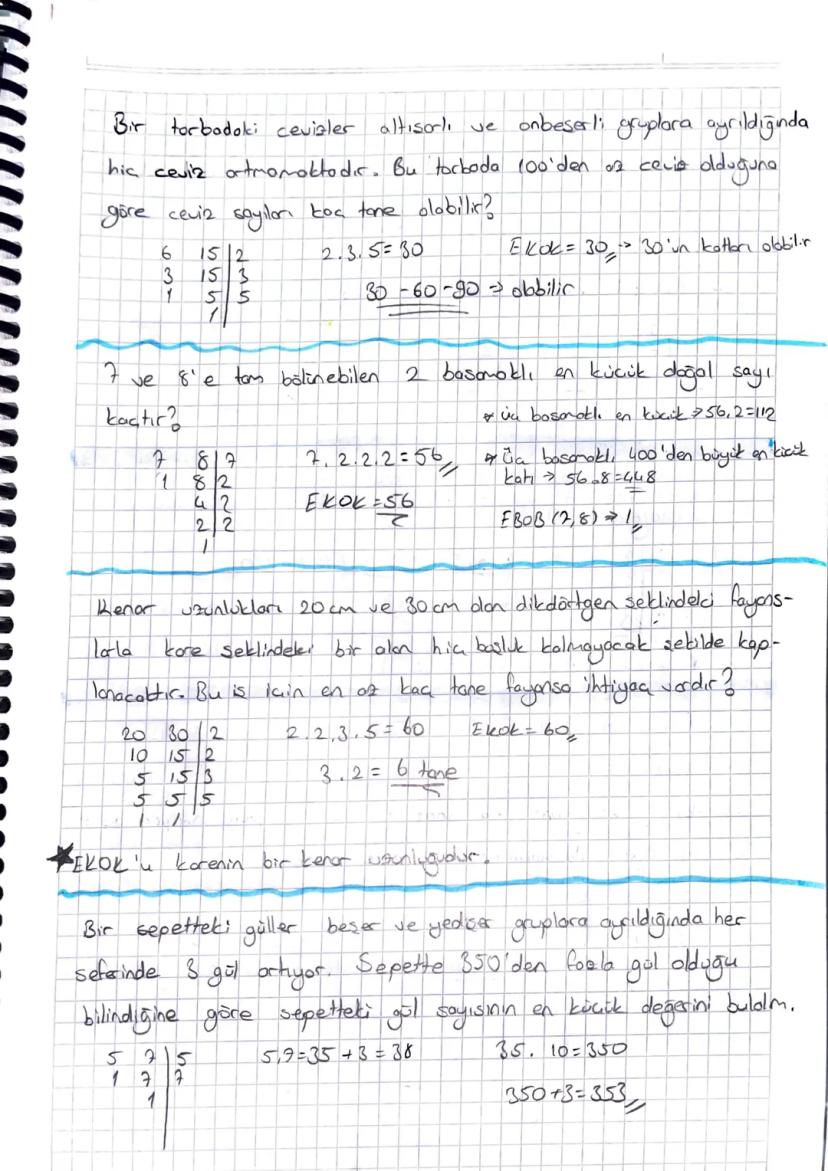 Bir torbadaki cevizler altışarlı ve onbeşerli gruplara ayrıldığında
hiç ceviz artmamaktadır. Bu torbada 100'den az ceviz olduğuna
göre ceviz sayıları kaç tane olabilir?
6 15 | 2 2.3.5=30 EKOK = 30 -> 30'un katları olabilir
3 15 | 3
1 5 | 5 30 - 60 - 90 => olabilir
1
7 ve 8'e tam bölünebilen 2 basamaklı en küçük doğal sayı
kaçtır? * üç basamaklı en küçük => 56.2=112
7 8 | 7 7.2.2.2=56 * Üç basamaklı 400'den büyük en küçük
1 8 | 2 katı -> 56.8=448
4 | 2 EKOK = 56
2 | 2 EBOB (7,8) => 1
1
Kenar uzunlukları 20 cm ve 30 cm olan dikdörtgen şeklindeki fayans-
larla kare şeklindeki bir alan hiç boşluk kalmayacak şekilde kap-
lanacaktır. Bu iş için en az kaç tane fayansa ihtiyaç vardır?
20 30 | 2 2.2.3.5=60 Ekok = 60
10 15 | 2
5 15 | 3 3.2 = 6 tane
5 5 | 5
1 1
★EKOK'u karenin bir kenar uzunluğudur.
Bir sepetteki güller beşer ve yedişer gruplara ayrıldığında her
seferinde 3 gül artıyor. Sepette 350'den fazla gül olduğu
bilindiğine göre sepetteki gül sayısının en küçük değerini bulalım.
5 7 | 5 5.7=35 +3 = 38 35. 10=350
1 7 | 7
1 350+3=353